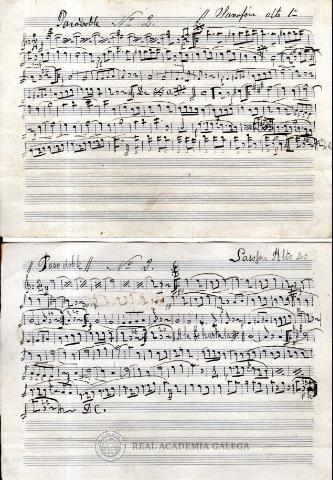 Pasodoble Nº 2. Saxofón alto 1º
Paso doble Nº 2. Saxofón Alto 2º
D.C.
REAL ACADEMIA GALEGA